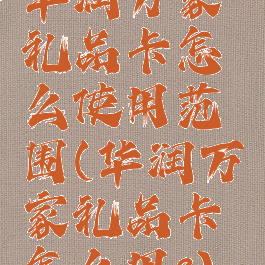 华润万家
礼品卡怎
么使用范
围(华润万
家礼品卡
怎么用?)